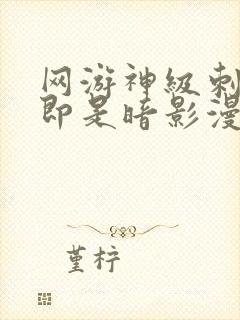 网游神级刺
即是暗影漫
堇梓